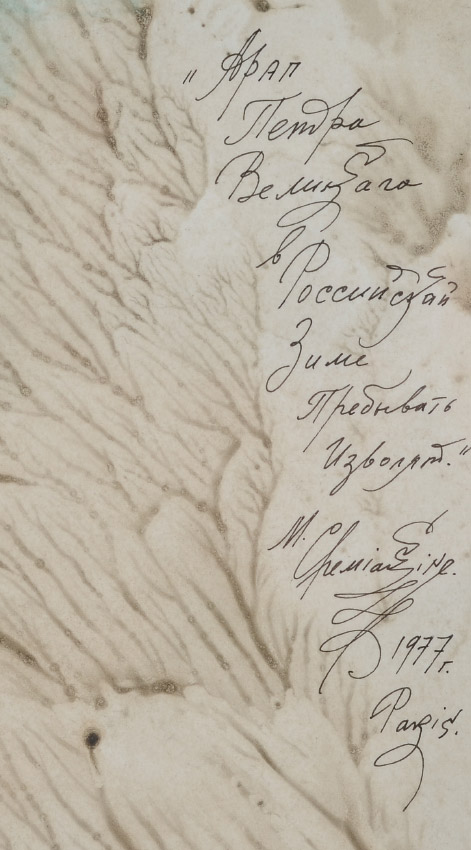 "Арап
Петра
Великаго
в
Россииской
Зиме
Пребывать
Изволят."
M. Chemiakine.
1977 г.
Paris.